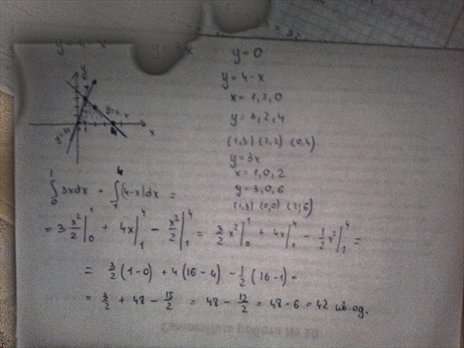 y=0
y=4-x
x=1,2,0
y=3,2,4
(1,3) (2,2) (0,4)
y=3x
x=1,0,2
y=3,0,6
(1,3) (0,0) (2,6)
∫₀¹ 3xdx + ∫₁⁴ (4-x)dx =
= 3 x²/2 |₀¹ + 4x |₁⁴ - x²/2 |₁⁴ = 3/2 x² |₀¹ + 4x |₁⁴ - 1/2 x² |₁⁴ =
= 3/2 (1-0) + 4(16-4) - 1/2 (16-1) =
= 3/2 + 48 - 15/2 = 48 - 12/2 = 48-6 = 42 кв ед.